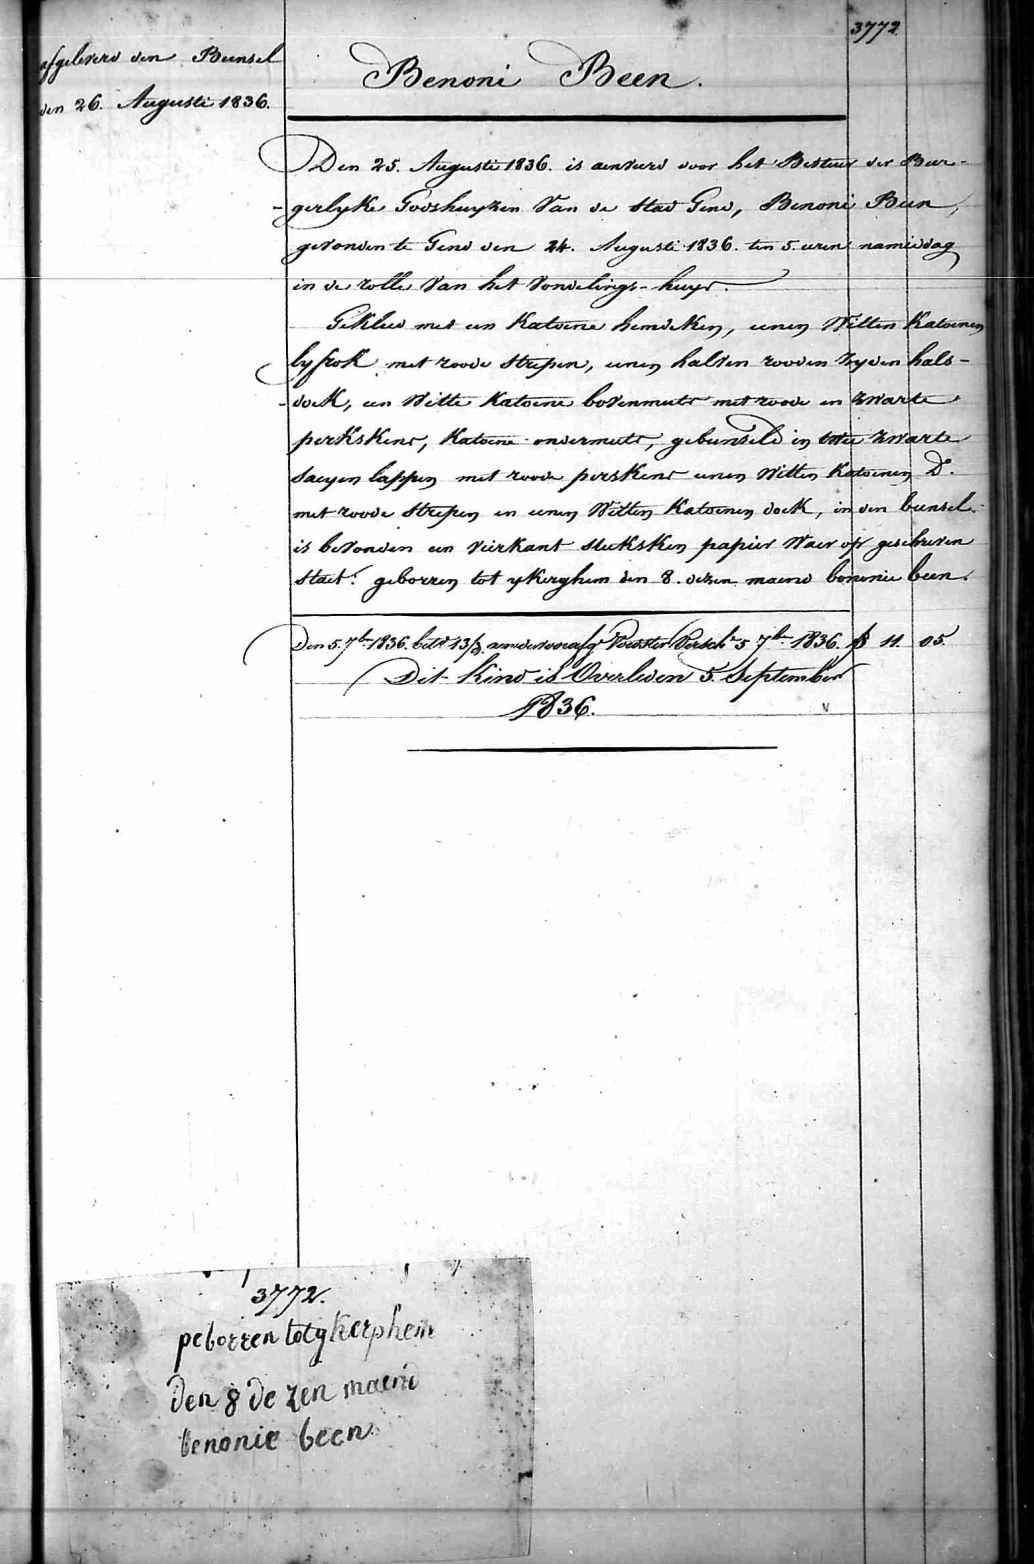 3772
afgeleverd den Bunsel
den 26. Augusti 1836.
Benoni Been.
Den 25. Augusti 1836. is aenverd door het Bestuur der Bur-
gerlyke Godshuyzen Van de Stad Gend, Benoni Been,
gevonden te Gend den 24. Augusti 1836. ten 5. uren namiddag
in de rolle Van het Vondelings-huys.
Gekleed met een Katoene hemdeken, eenen Witten Katoenen
lyfrok met roode Strepen, eenen halven rooden Zyden hals-
doek, een Witte Katoene bovenmuts met roode en Zwarte
perkskens, Katoene ondermuts, gebunseld in twee Zwarte
Saeyen lappen met roode perskens eenen Witten Katoenen Do.
met roode Strepen en eenen Witten Katoenen doek, in den bunsel
is bevonden een vierkant stuksken papier Waer op geschreven
staet: geborren tot ykerghem den 8. dezen maend bononie been.
Den 5. 7ber 1836. 5 7ber 1836. 11. 05.
Dit Kind is Overleden 5. September
1836.
3772.
geborren tot ykerghem
den 8 de zen maend
benonie been